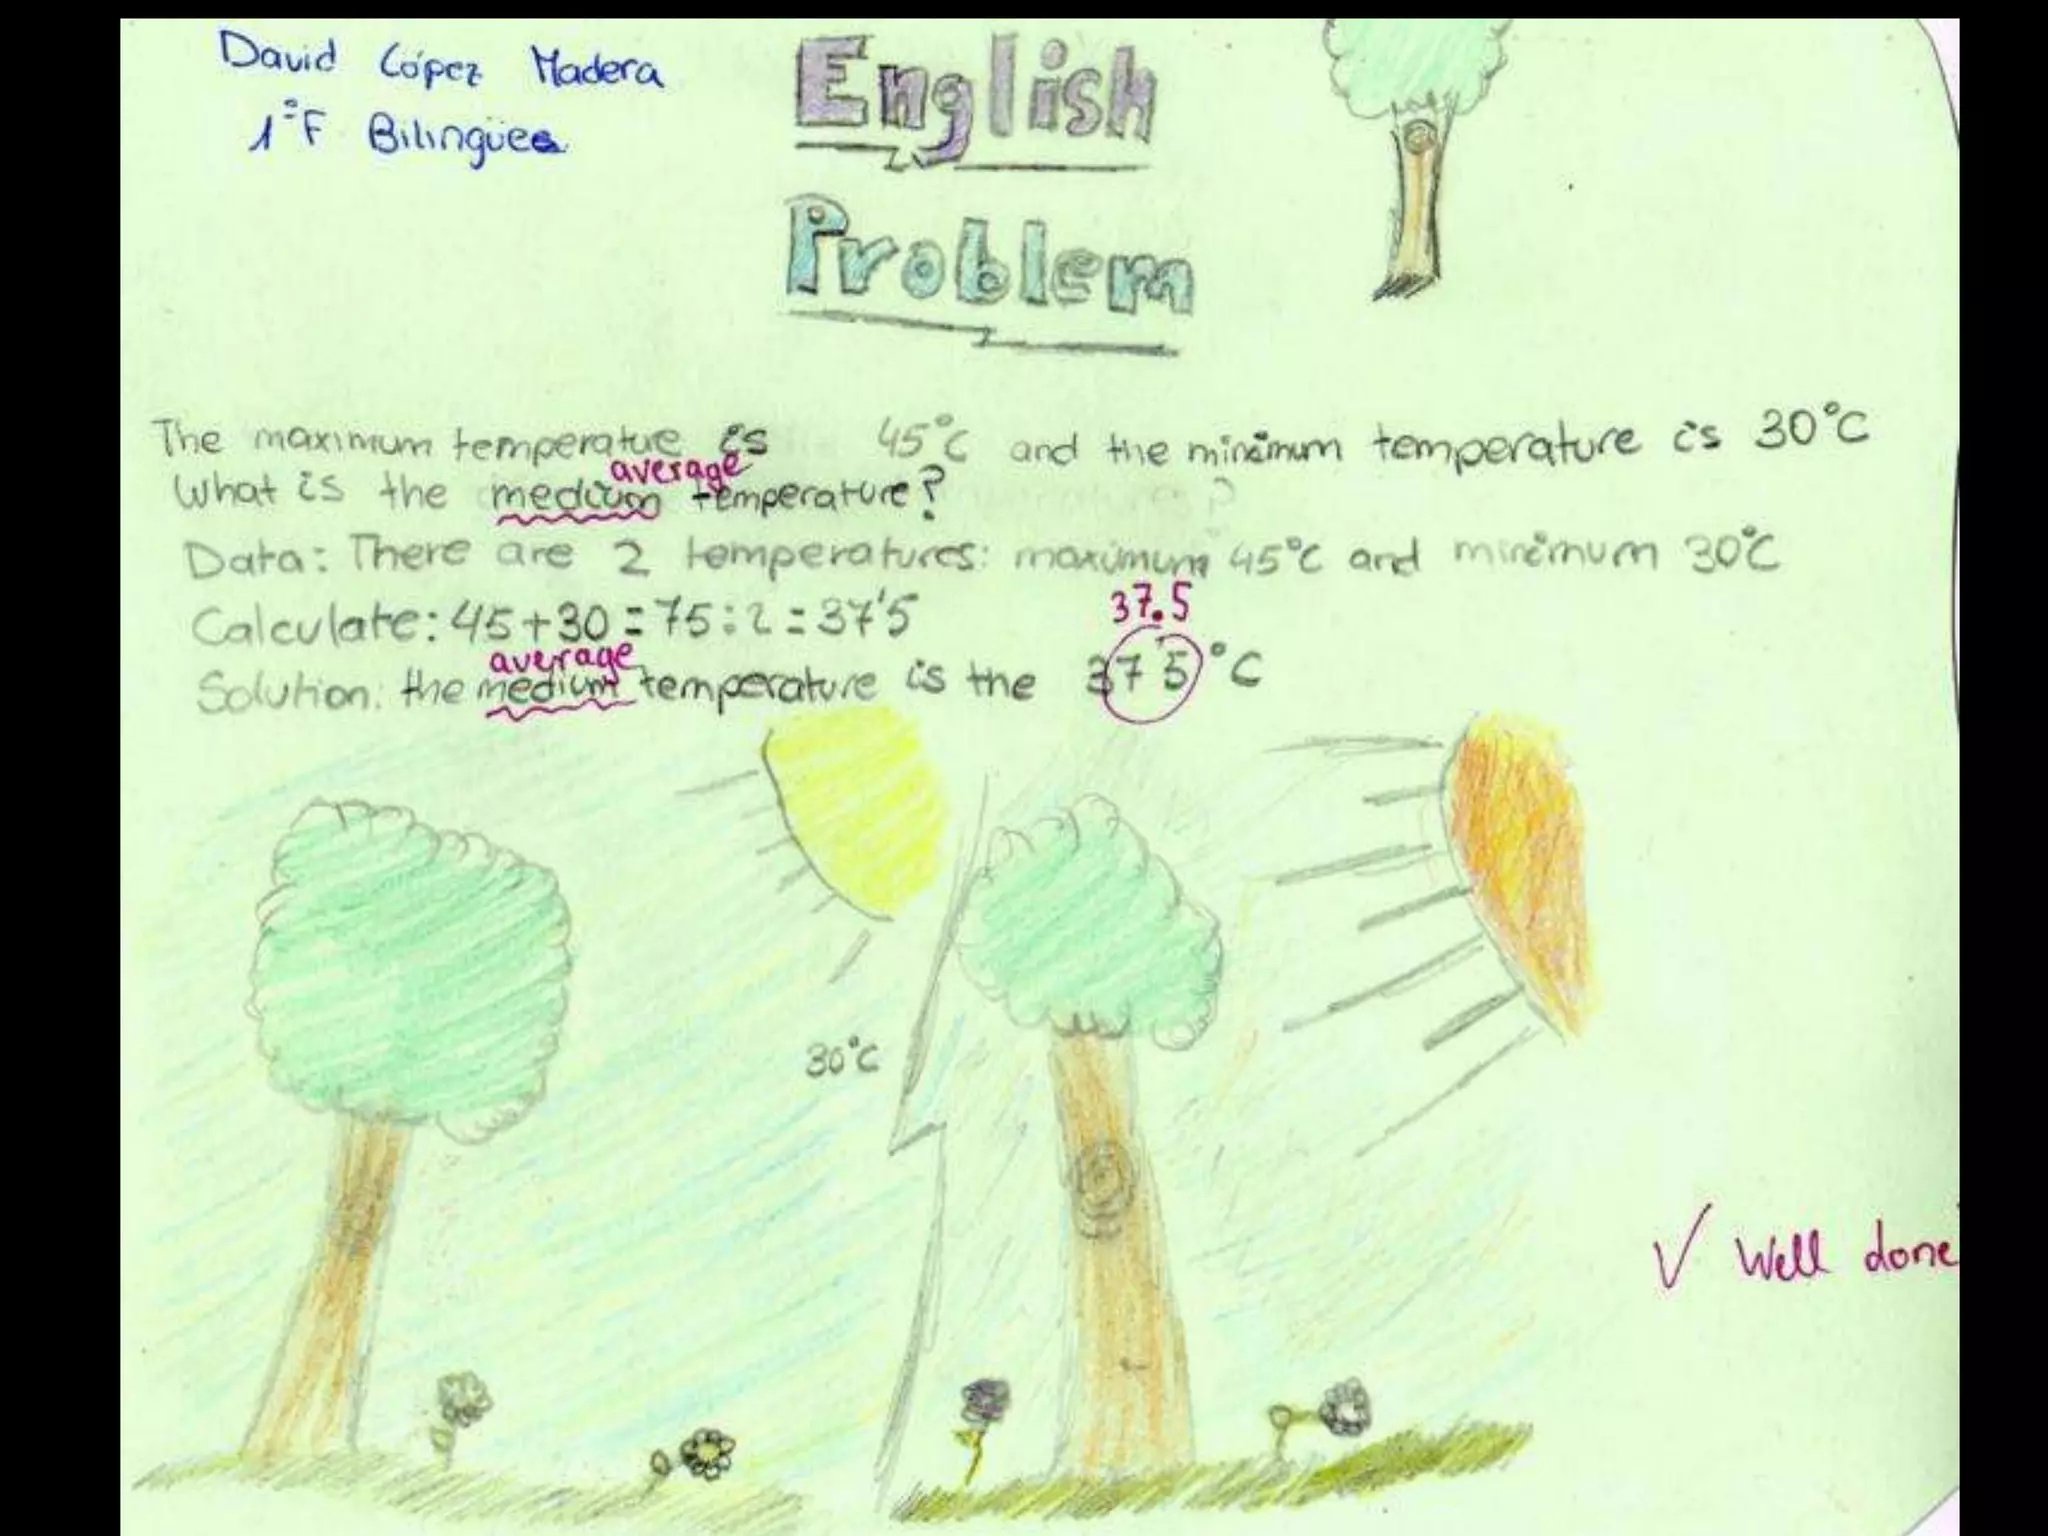 David López Madera
1ºF Bilingüe
English
Problem
The maximum temperature is 45°C and the minimum temperature is 30°C
average
What is the medium temperature?
Data: There are 2 temperatures: maximum 45°C and minimum 30°C
37.5
Calculate: 45+30=75:2=37'5
average
Solution: the medium temperature is the 37'5°C
30°C
√ Well done